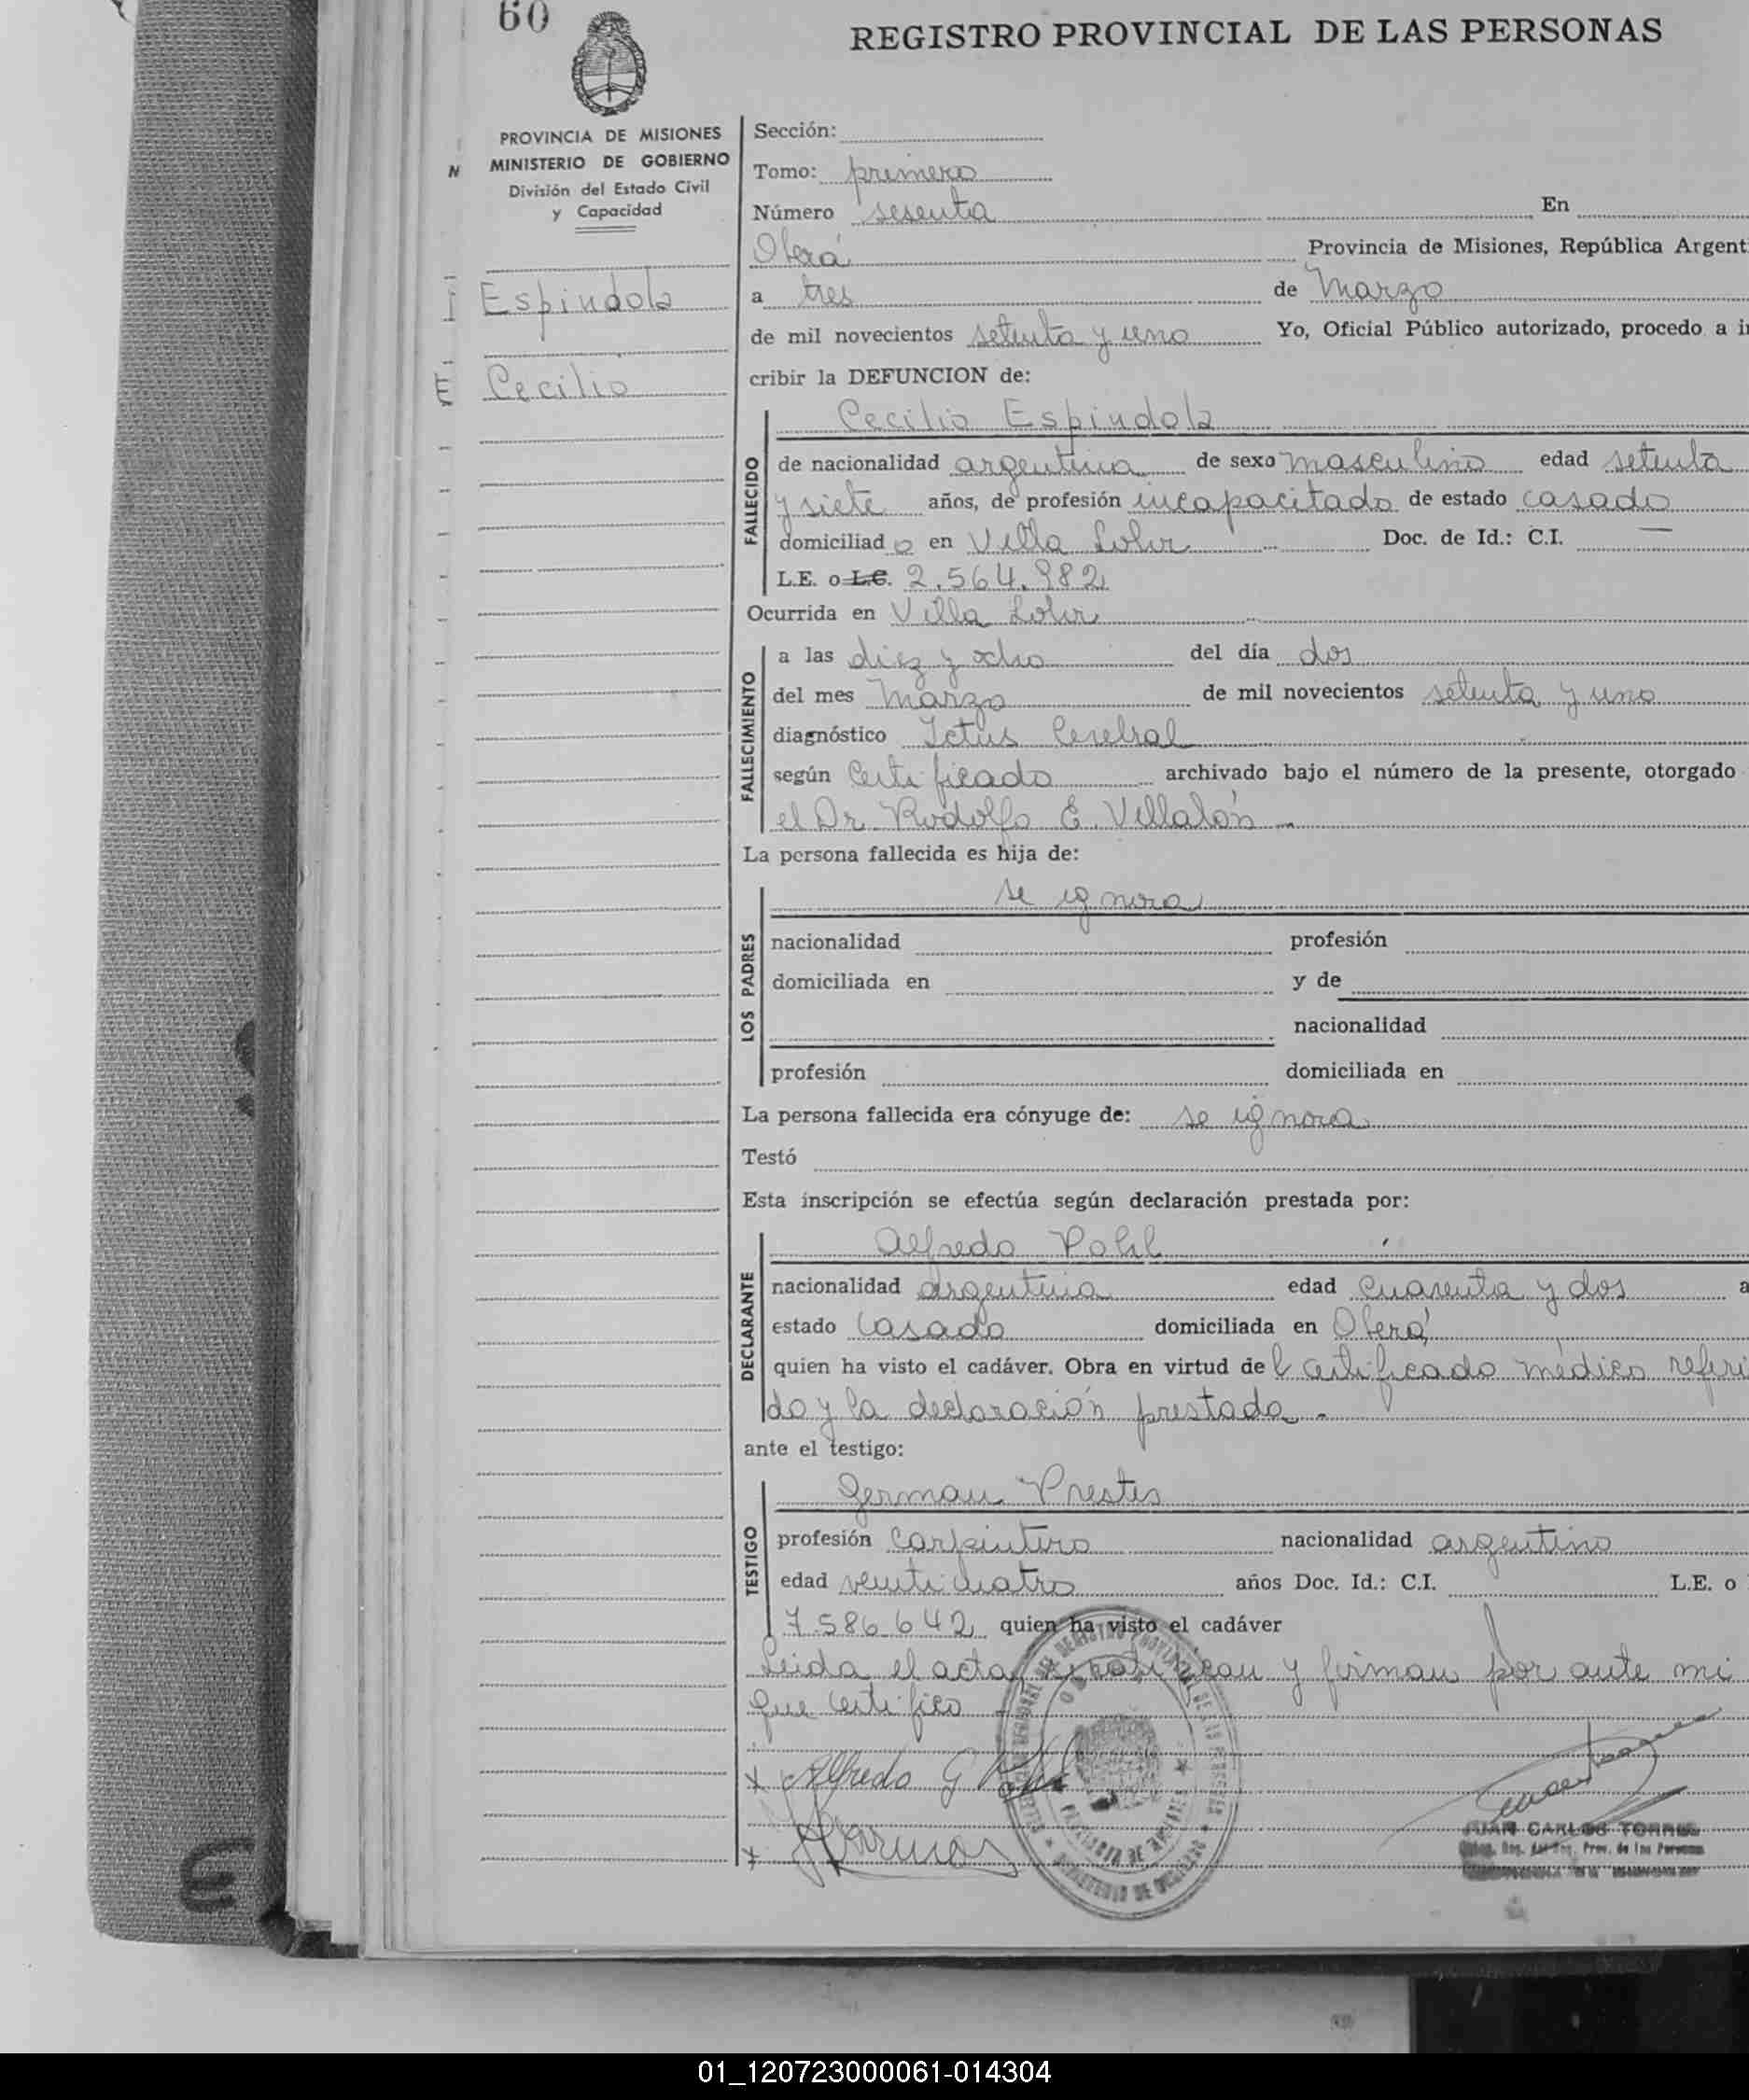 60
REGISTRO PROVINCIAL DE LAS PERSONAS
PROVINCIA DE MISIONES
MINISTERIO DE GOBIERNO
División del Estado Civil
y Capacidad
Espindola
Cecilio
Sección:
Tomo: primero
Número sesenta En
Oberá Provincia de Misiones, República Argent
a tres de Marzo
de mil novecientos setenta y uno Yo, Oficial Público autorizado, procedo a i
cribir la DEFUNCION de:
Cecilio Espindola
FALLECIDO
de nacionalidad argentina de sexo masculino edad setenta
y siete años, de profesión incapacitado de estado casado
domiciliad o en Villa Doc. de Id.: C.I. —
L.E. o L.C. 2.564.982
Ocurrida en Villa
FALLECIMIENTO
a las diez y ocho del día dos
del mes Marzo de mil novecientos setenta y uno
diagnóstico Ictus Cerebral
según Certificado archivado bajo el número de la presente, otorgado
el Dr. Rodolfo E. Villalón -
La persona fallecida es hija de:
se ignora
LOS PADRES
nacionalidad profesión
domiciliada en y de
nacionalidad
profesión domiciliada en
La persona fallecida era cónyuge de: se ignora
Testó
Esta inscripción se efectúa según declaración prestada por:
Alfredo Pohl
DECLARANTE
nacionalidad argentina edad cuarenta y dos a
estado Casado domiciliada en Oberá
quien ha visto el cadáver. Obra en virtud de l certificado médico referi
do y la declaración prestada -
ante el testigo:
German Prestes
TESTIGO
profesión Carpintero nacionalidad argentino
edad veinticuatro años Doc. Id.: C.I. L.E. o
7.586.642 quien ha visto el cadáver
Leida el acta, ratifican y firman por ante mi
que certifico
x Alfredo G
x
JUAN CARLOS TORRES
01_120723000061-014304